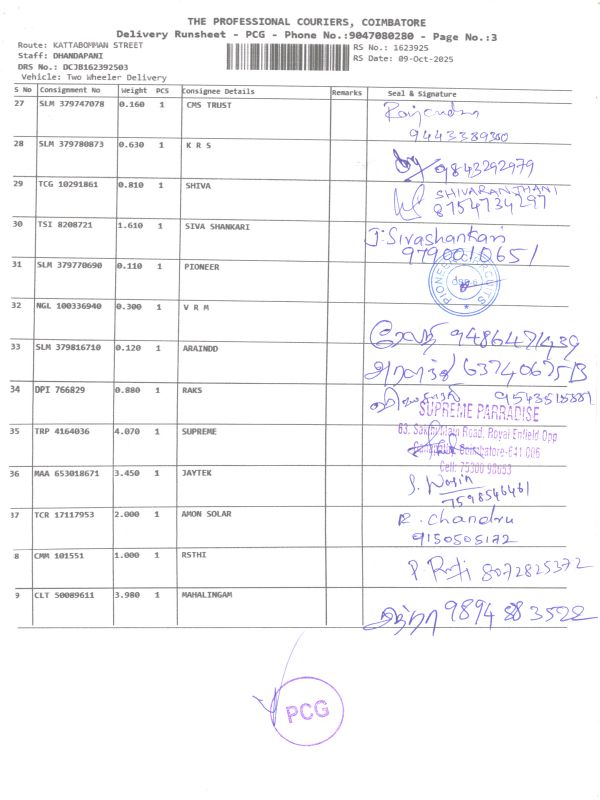 THE PROFESSIONAL COURIERS, COIMBATORE
Delivery Runsheet - PCG - Phone No.:9047080280 - Page No.:3
Route: KATTABOMMAN STREET
RS No.: 1623925
Staff: DHANDAPANI
RS Date: 09-Oct-2025
DRS No.: DCJB162392503
Vehicle: Two Wheeler Delivery
S No Consignment No Weight PCS Consignee Details Remarks Seal & Signature
27 SLM 379747078 0.160 1 CMS TRUST Rajendra
9443389300
28 SLM 379780873 0.630 1 K R S 9843292979
29 TCG 10291861 0.810 1 SHIVA SHIVARANJHANI
8754734297
30 TSI 8208721 1.610 1 SIVA SHANKARI J. Sivashankari
9790010651
31 SLM 379770690 0.110 1 PIONEER
32 NGL 100336940 0.300 1 V R M 9486471439
33 SLM 379816710 0.120 1 ARAINDD
34 DPI 766829 0.880 1 RAKS
SUPREME PARRADISE
35 TRP 4164036 4.070 1 SUPREME 63, Road, Royal Enfield Opp
Coimbatore-641 006
Cell: 75300 90653
36 MAA 653018671 3.450 1 JAYTEK S.
7598546461
37 TCR 17117953 2.000 1 AMON SOLAR R. Chandru
9150505172
8 CMM 101551 1.000 1 RSTHI P. 8072825372
9 CLT 50089611 3.980 1 MAHALINGAM 9894883522
PCG